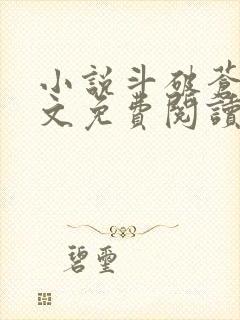 小說斗破蒼
文免費閱讀
碧璽